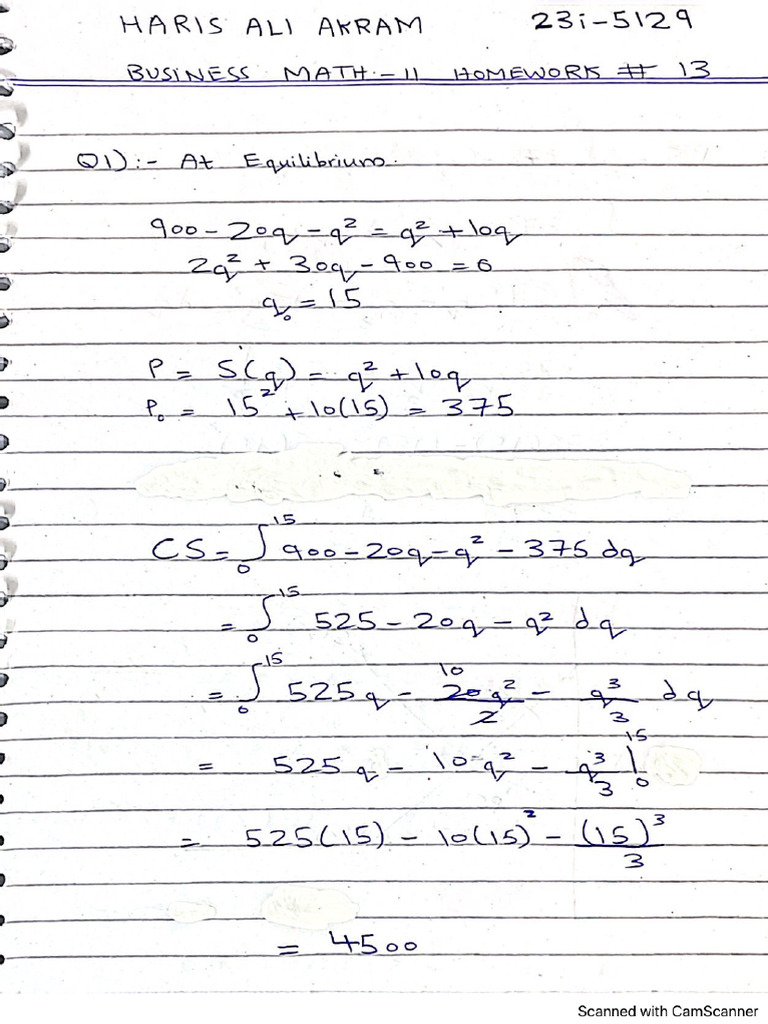 HARIS ALI AKRAM 23i-5129
BUSINESS MATH-II HOMEWORK # 13
Q1):- At Equilibrium.
900 - 20q - q² = q² + 10q
2q² + 30q - 900 = 0
q₀ = 15
P = S(q) = q² + 10q
P₀ = 15² + 10(15) = 375
CS = ∫₀¹⁵ 900 - 20q - q² - 375 dq
= ∫₀¹⁵ 525 - 20q - q² dq
= ∫₀¹⁵ 525q - 20q²/2 10 - q³/3 dq
= 525q - 10q² - q³/3 |₀¹⁵
= 525(15) - 10(15)² - (15)³/3
= 4500
Scanned with CamScanner